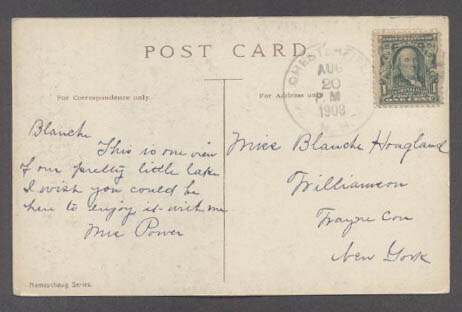 POST CARD
For Correspondence only.
For Address only.
CHESTERFIELD
AUG
20
P M
1908
N.H.
1
ONE CENT
Blanche
This is one view
of our pretty little lake
I wish you could be
here to enjoy it with me
Mrs Power
Miss Blanche Hoagland
Williamson
Wayne Con
New York
Nameschaug Series.